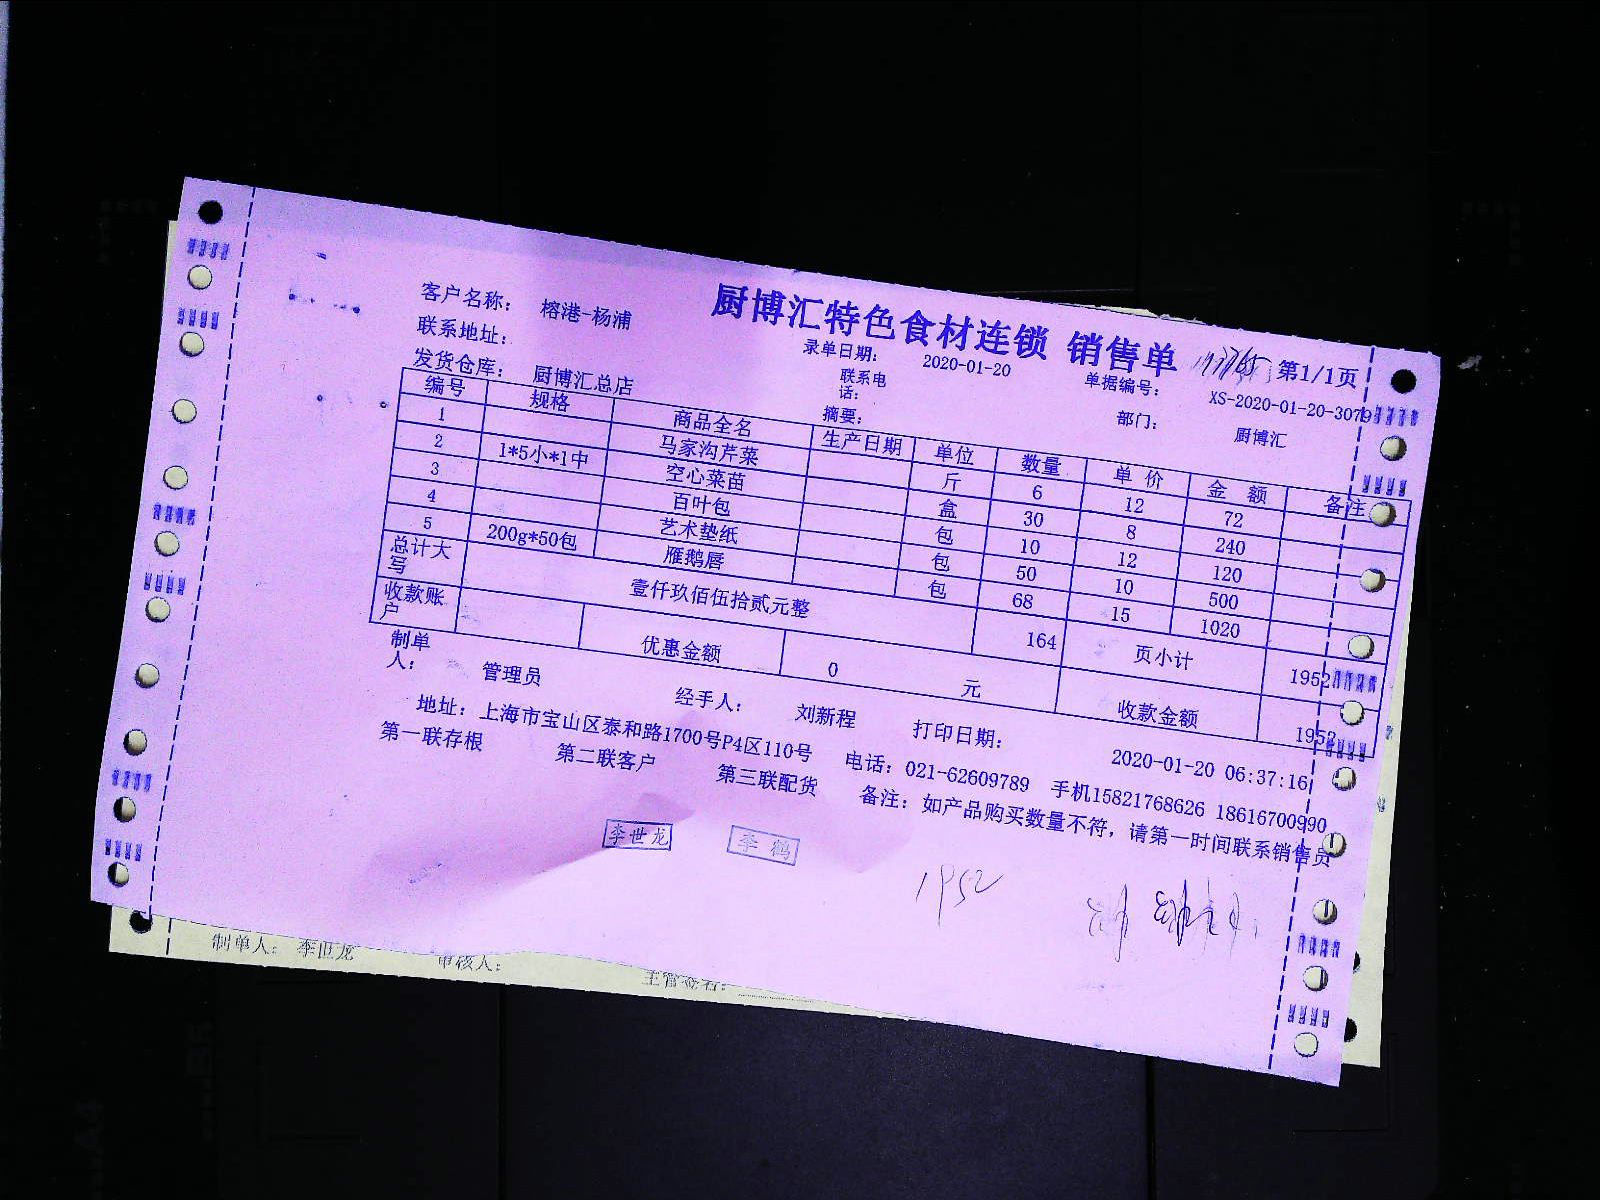 厨博汇特色食材连锁 销售单 第1/1页
客户名称： 榕港-杨浦 录单日期： 2020-01-20 单据编号： XS-2020-01-20-3079
联系地址： 联系电话： 部门： 厨博汇
发货仓库： 厨博汇总店 摘要：
编号 规格 商品全名 生产日期 单位 数量 单 价 金 额 备注
1 马家沟芹菜 斤 6 12 72
2 1*5小*1中 空心菜苗 盒 30 8 240
3 百叶包 包 10 12 120
4 艺术垫纸 包 50 10 500
5 200g*50包 雁鹅唇 包 68 15 1020
总计大写 壹仟玖佰伍拾贰元整 164 页小计 1952
收款账户 优惠金额 0 元 收款金额 1952
制单人： 管理员 经手人： 刘新程 打印日期： 2020-01-20 06:37:16
地址：上海市宝山区泰和路1700号P4区110号 电话：021-62609789 手机15821768626 18616700990
第一联存根 第二联客户 第三联配货 备注：如产品购买数量不符，请第一时间联系销售员
李世龙 李鹤
1952
制单人： 李世龙 审核人： 主管签名：